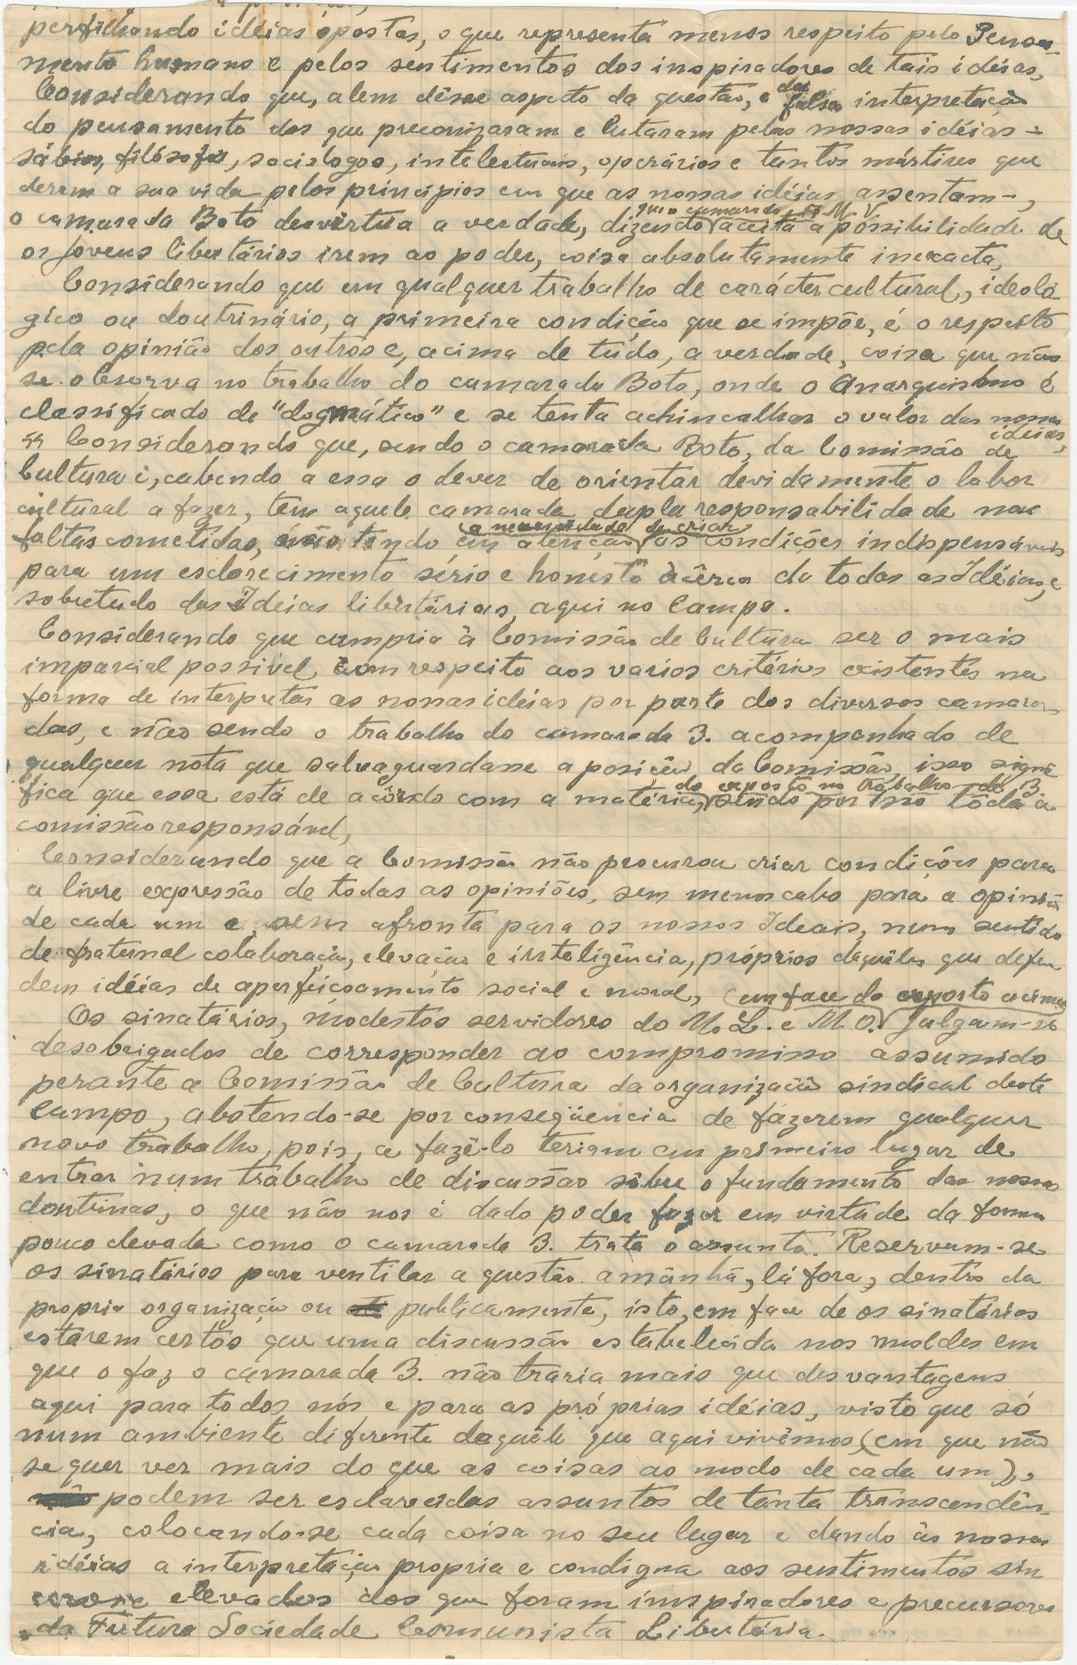 perfilhando idéias opostas, o que representa menos respeito pelo Pensa-
mento humano e pelos sentimentos dos inspiradores de tais idéias,
Considerando que, alem dêsse aspecto da questão, e da falsa interpretação
do pensamento dos que preconizaram e lutaram pelas nossas idéias -
sábios, filósofos, sociólogos, intelectuais, operários e tantos mártires que
deram a sua vida pelos princípios em que as nossas idéias assentam -,
o camarada Boto desvirtua a verdade, dizendo que o camarada M. V. aceita a possibilidade de
os Jovens libertários irem ao poder, coisa absolutamente inexacta,
Considerando que em qualquer trabalho de carácter cultural, ideoló
gico ou doutrinário, a primeira condição que se impõe, é o respeito
pela opinião dos outros e, acima de tudo, a verdade, coisa que não
se observa no trabalho do camarada Boto, onde o Anarquismo é
classificado de "dogmático" e se tenta achincalhar o valor das nossas idéias,
Considerando que, sendo o camarada Boto, da Comissão de
Cultura e, cabendo a essa o dever de orientar devidamente o labor
cultural a fazer, tem aquele camarada dupla responsabilidade nas
faltas cometidas, não tendo em atenção a necessidade de criar as condições indispensáveis
para um esclarecimento sério e honesto àcêrca de todas as Idéias, e
sobretudo das Ideias libertárias, aqui no Campo.
Considerando que cumpria à Comissão de Cultura ser o mais
imparcial possivel com respeito aos varios critérios existentes na
forma de interpretar as nossas idéias por parte dos diversos camara-
das, e não sendo o trabalho do camarada B. acompanhado de
qualquer nota que salvaguardasse a posição da Comissão, isso signi
fica que essa está de acôrdo com a matéria do exposto no trabalho do B., sendo por isso tôda a
comissão responsável,
Considerando que a Comissão não procurou criar condições para
a livre expressão de todas as opiniões, sem menoscabo para a opinião
de cada um e sem afronta para os nossos Ideais, num sentido
de fraternal colaboração, elevação e inteligência, próprios daqueles que defen
dem idéias de aperfeiçoamento social e moral,
Os sinatários, modestos servidores do M. L. e M. O. (em face do exposto acima) julgam-se
desobrigados de corresponder ao compromisso assumido
perante a Comissão de Cultura da organização sindical deste
Campo, abstendo-se por conseqüencia de fazerem qualquer
novo trabalho, pois, a fazê-lo teriam em primeiro lugar de
entrar num trabalho de discussão sôbre o fundamento das nossas
doutrinas, o que não nos é dado poder fazer em virtude da forma
pouco elevada como o camarada B. trata o assunto. Reservam-se
os sinatários para ventilar a questão amanhã, lá fora, dentro da
propria organização ou publicamente, isto, em face de os sinatários
estarem certos que uma discussão estabelecida nos moldes em
que o faz o camarada B. não traria mais que desvantagens
aqui para todos nós e para as próprias idéias, visto que só
num ambiente diferente daquêle que aqui vivêmos (em que não
se quer ver mais do que as coisas ao modo de cada um),
podem ser esclarecidos assuntos de tanta transcendên-
cia, colocando-se cada coisa no seu lugar e dando às nossas
idéias a interpretação propria e condigna aos sentimentos sin
ceros e elevados dos que foram inspiradores e precursores
da Futura Sociedade Comunista Libertária.